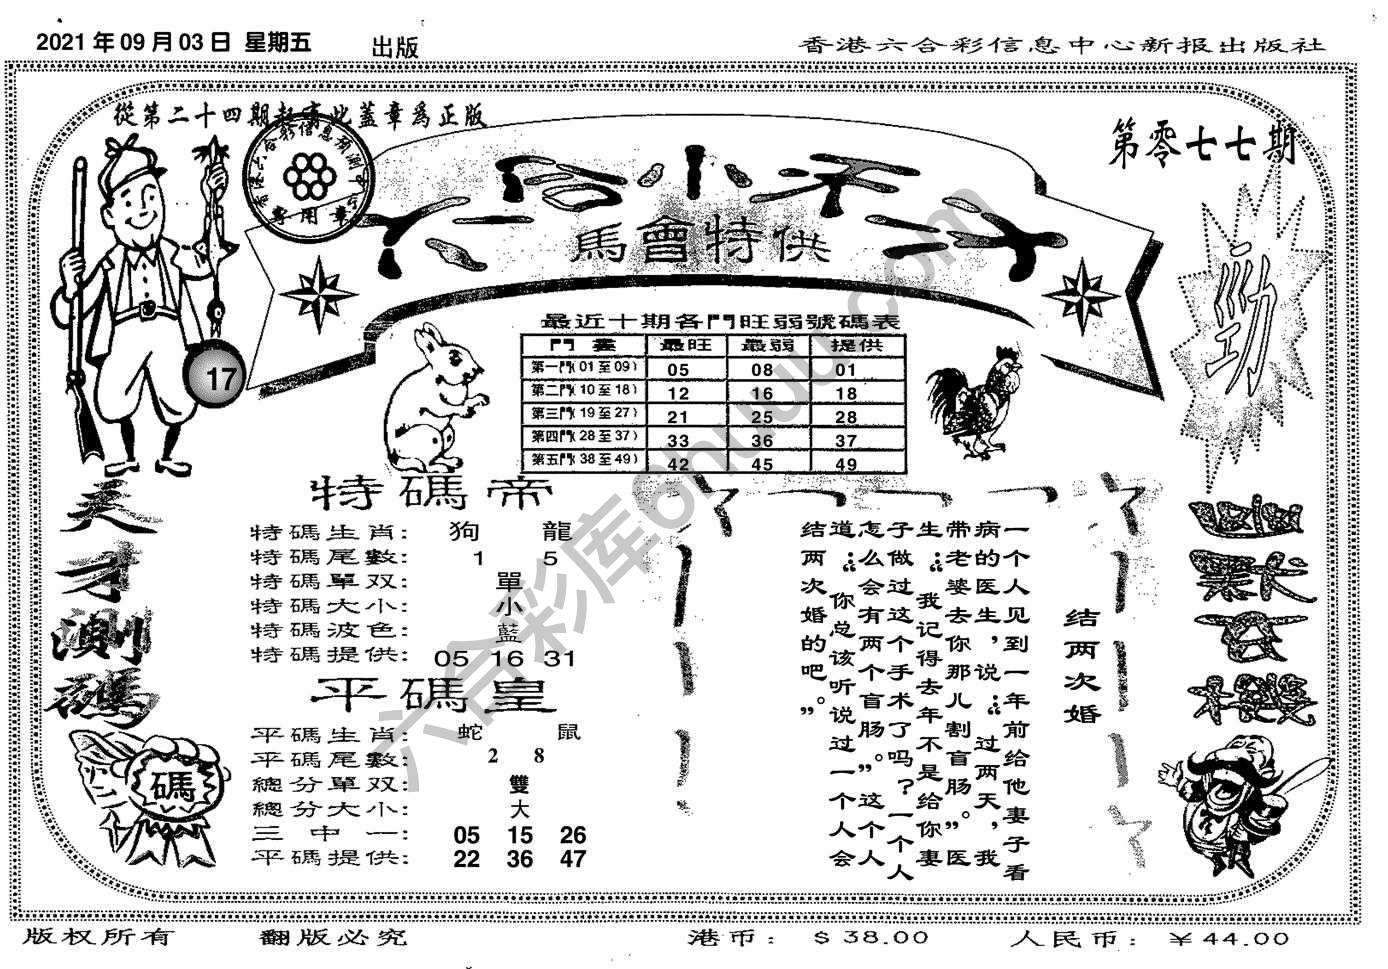 2021 年 09 月 03 日 星期五 出版
香港六合彩信息中心新报出版社
從第二十四期起寄此蓋章爲正版
第零七七期
六合小天才
馬會特供
勁
17
最近十期各門旺弱號碼表
門 最旺 最弱 提供
第一門(01至09) 05 08 01
第二門(10至18) 12 16 18
第三門(19至27) 21 25 28
第四門(28至37) 33 36 37
第五門(38至49) 42 45 49
天才測碼
碼
特碼帝
特碼生肖: 狗 龍
特碼尾數: 1 5
特碼單双: 單
特碼大小: 小
特碼波色: 藍
特碼提供: 05 16 31
平碼皇
平碼生肖: 蛇 鼠
平碼尾數: 2 8
總分單双: 雙
總分大小: 大
三中一: 05 15 26
平碼提供: 22 36 47
结两次婚
一个人见到一年前给他妻子看
病的医生，说：“过两天，我
带老婆去你那儿割盲肠”。医
生：“我记得去年不是给你妻
子做过这个手术了吗？一个人
怎么会有两个盲肠”。这个人
道：“你总该听说过一个人会
结两次婚的吧。”
六合彩库6huuu.com
版权所有 翻版必究
港币： $ 38.00 人民币： ￥44.00